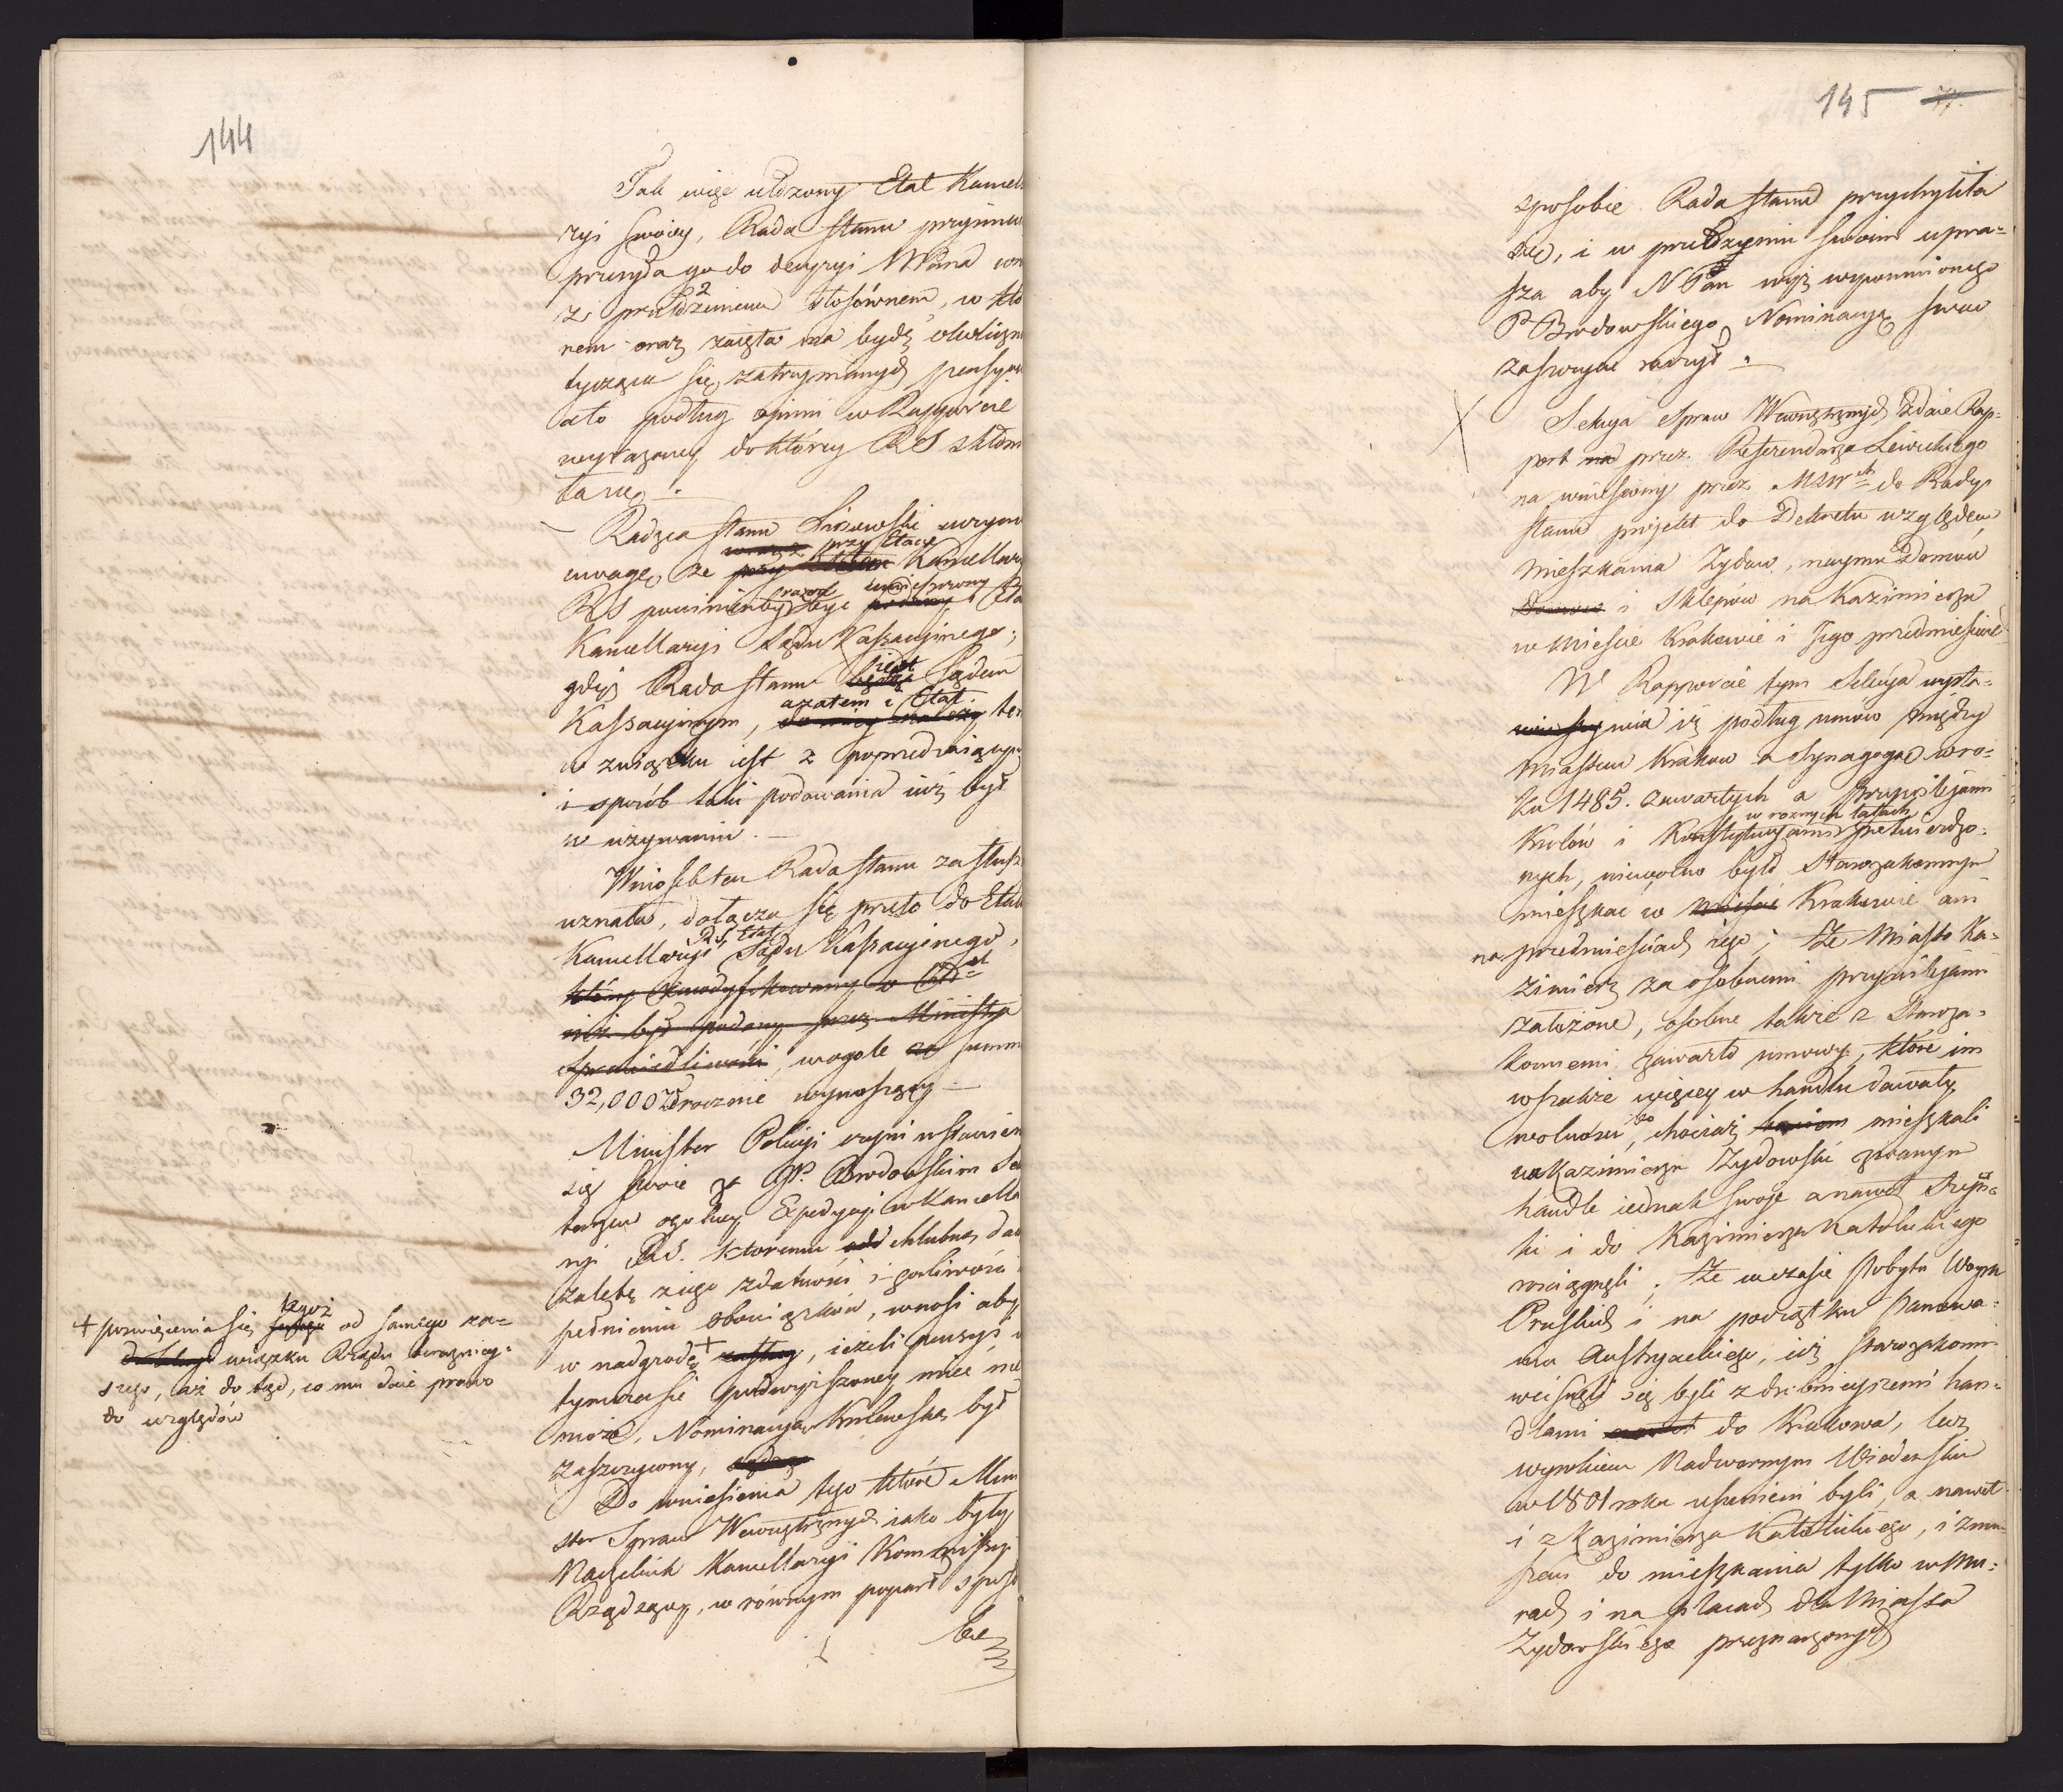 144
Tak więc ułożony Etat Kancel
ryi swoiey, Rada Stanu przyimu
przesyła go do decyzyi NPana wra
z przełożeniem stosownem, w któ
rem oraz zaięta ma bydź okoliczn
tycząca się zatrzymanych pensyi
a to podług opinii w Rapporcie
wyrażoney do którey RS skłoni
ła się.
Radzca Stanu Linowski uczyni
uwagę, że przy Etacie Kancellary
RS powinienby razem być umieszczony i Eta
Kancellaryi Sądu Kassacyinego,
gdyż Rada Stanu iest Sądem
Kassacyinym, a zatem i Etat ten
w związku iest z poprzedniczym
i sposób taki podawania iuż był
w używaniu.
Wniosek ten Rada Stanu za słusz
uznała, dołącza się przeto do Etatu
Kancellaryi R S. Etat Sądu Kassacyinego,
który zmodyfikowany
iuż był podany przez Ministra
Sprawiedliwości, w ogóle summ
32,000 Zł rocznie wynoszący
Minister Policyi czyni wstawien
się swoie za JP. Brodowskim Se
tarzem ogólney Expedycyi w Kancella
ryi RS. któremu chlubną daie
zaletę z iego zdatności i gorliwości
pełnieniu obowiązków, wnosi aby
w nadgrodę + zasług, ieżeli pensyi w
tym czasie podwyższoney mieć nie
może, Nominacyą Królewską był
zaszczycony,
Do wniesienia tego które Mini
ster Spraw Wewnętrznych iako były
Naczelnik Kancellaryi Kommissyi
Rządzącey, w równym poparł sposo
bie
+ poświęcenia się tegoż od samego za=
wiązku Rządu teraźniey=
szego, aż do tąd, co mu daie prawo
do względów
145
sposobie Rada Stanu przychyliła
się, i w przełożeniu swoim upra=
sza aby N Pan wyż wspomnionego
P Brodowskiego Nominacyą swą
zaszczycić raczył.
Sekcya Spraw Wewnętrznych zdaie Rap=
port przez Referendarza Lewickiego
na wniesiony przez MSWch do Rady
Stanu projekt do Dekretu względem
mieszkania Żydów, naymu Domów
i Sklepów na Kazimierzu
w mieście Krakowie i Jego przedmieście
W Rapporcie tym Sekcya wysta=
wia iż podług umów między
Miastem Krakow a Synagogą w ro=
ku 1485. zawartych a Przywilejami
Królów i Konstytucyami w roznych latach potwierdzo=
nych, niewolno było Starozakonnym
mieszkać w Krakowie ani
na przedmieściach iego; że Miasto Ka=
zimierz za osobnemi przywilejami
założone, osobne także z Staroza=
konnemi zawarło umowy, które im
wszakże więcey w handlu dawały
wolności, bo chociaż mieszkali
na Kazimierzu Żydowski zwanym
handle iednak swoje a nawet Szyn=
ki i do Kazimierza Katolickiego
wciągnęli; że w czasie pobytu Woysk
Pruskich i na początku panowa=
nia Austryackiego, iuż Starozakonni
wcisnęli się byli z drobnieyszemi han=
dlami do Krakowa, lecz
wyrokiem Nadwornym Wiedeńskim
w 1801 roku usunieni byli, a nawet
i z Kazimierza Katolickiego, i zmu=
szeni do mieszkania tylko w mu=
rach i na placach dla Miasta
Żydowskiego przeznaczonych